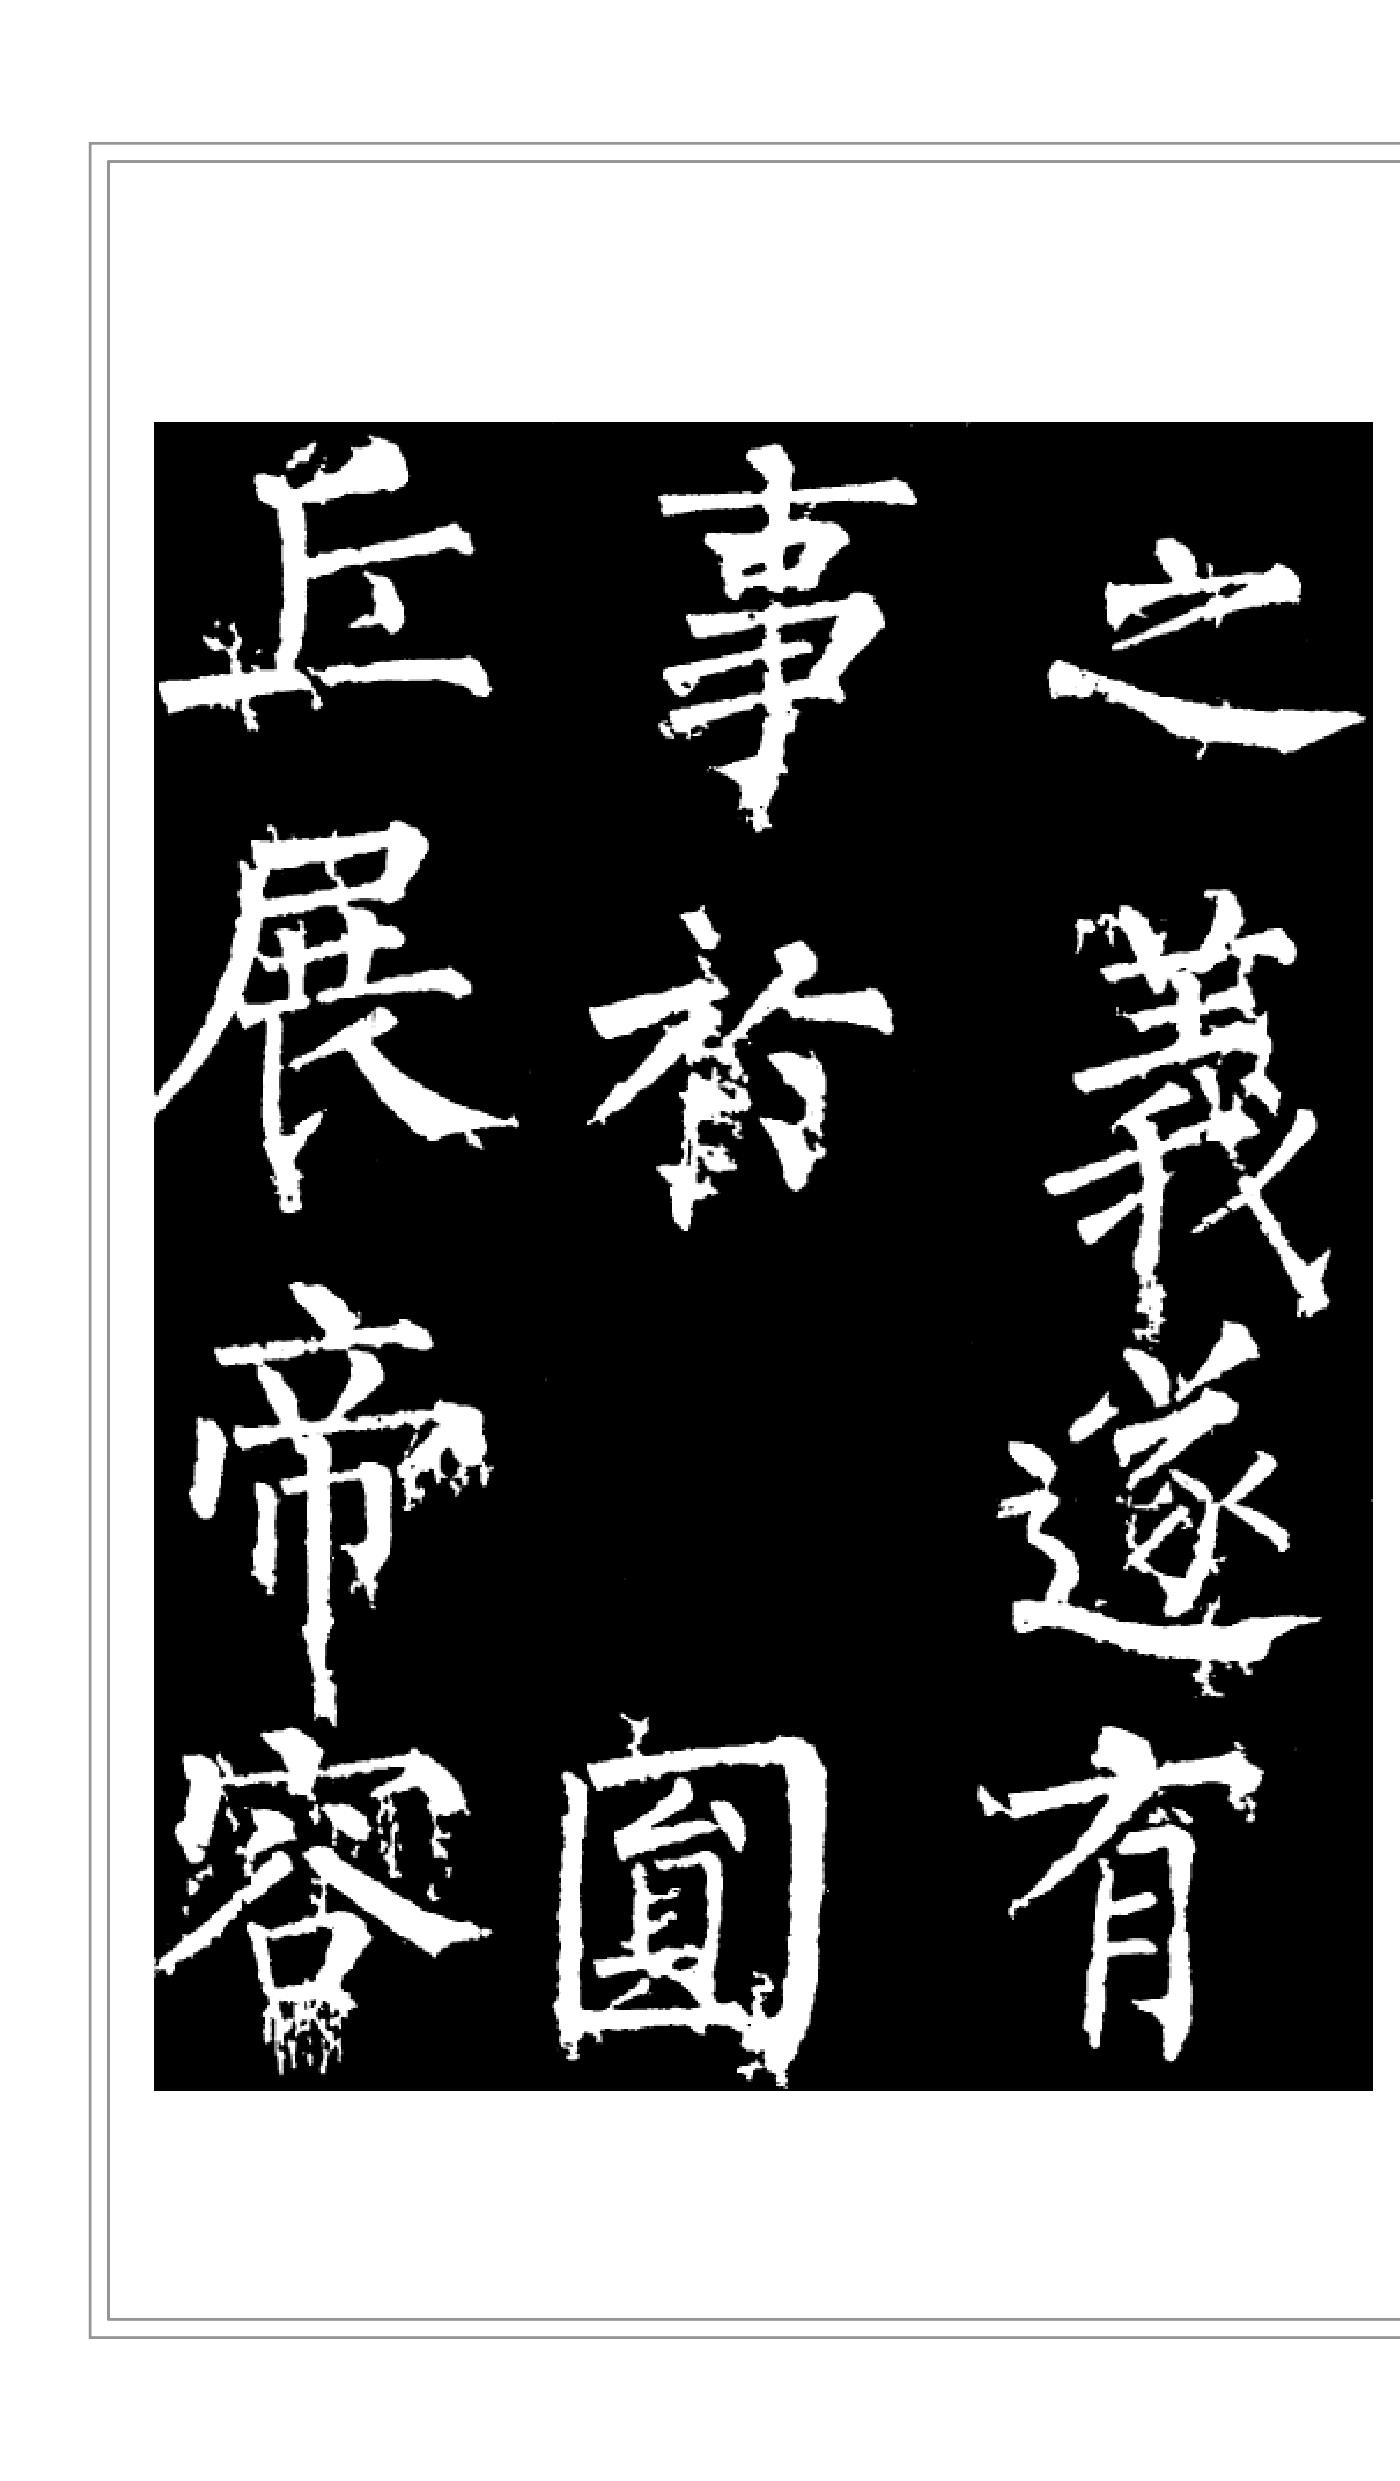 之義遂有
事於圓
丘展帝容